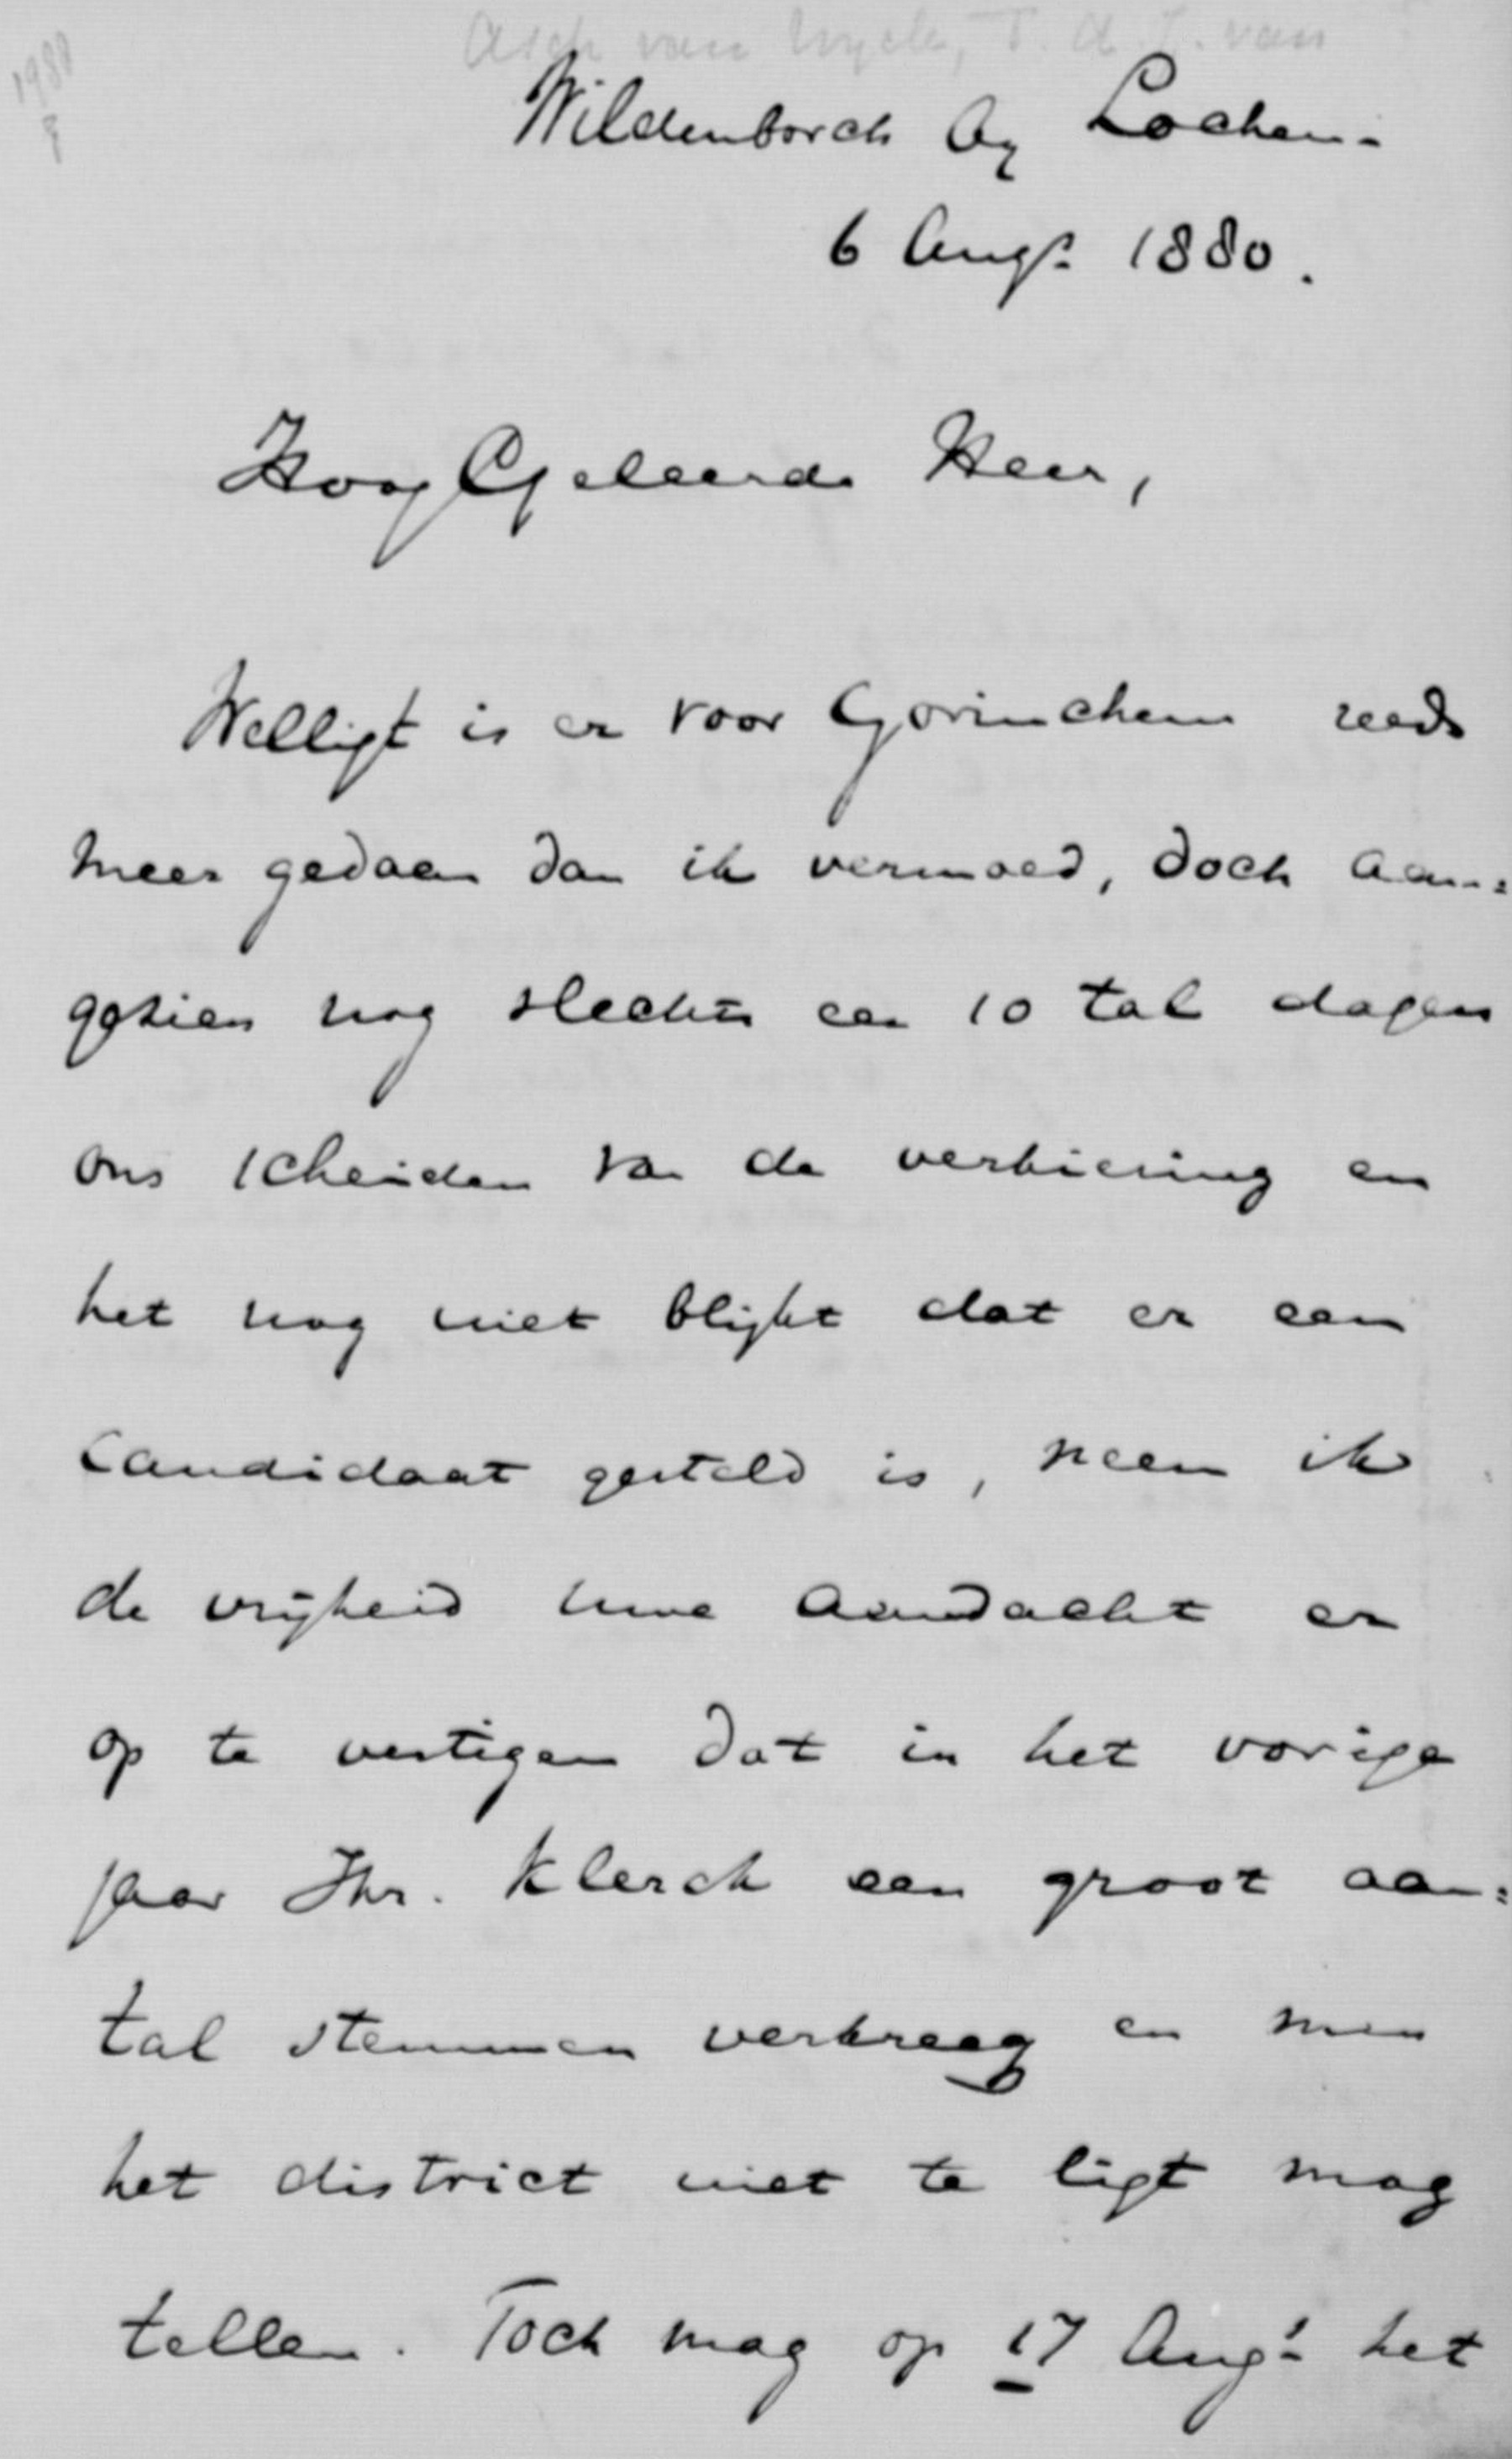 Asch van Wyck, T. A. J. van
1988
Wildenborch by Lochem.
6 Augs. 1880.
HoogGeleerde Heer,
Welligt is er voor Gorinchem reeds
meer gedaan dan ik vermoed, doch aan:
gezien nog slechts een 10 tal dagen
ons scheiden van de verkiezing en
het nog niet blijkt dat er een
candidaat gesteld is, neem ik
de vrijheid uwe aandacht er
op te vestigen dat in het vorige
jaar Jhr. Klerck een groot aan:
tal stemmen verkreeg en men
het district niet te ligt mag
tellen. Toch mag op 17 Augs. het